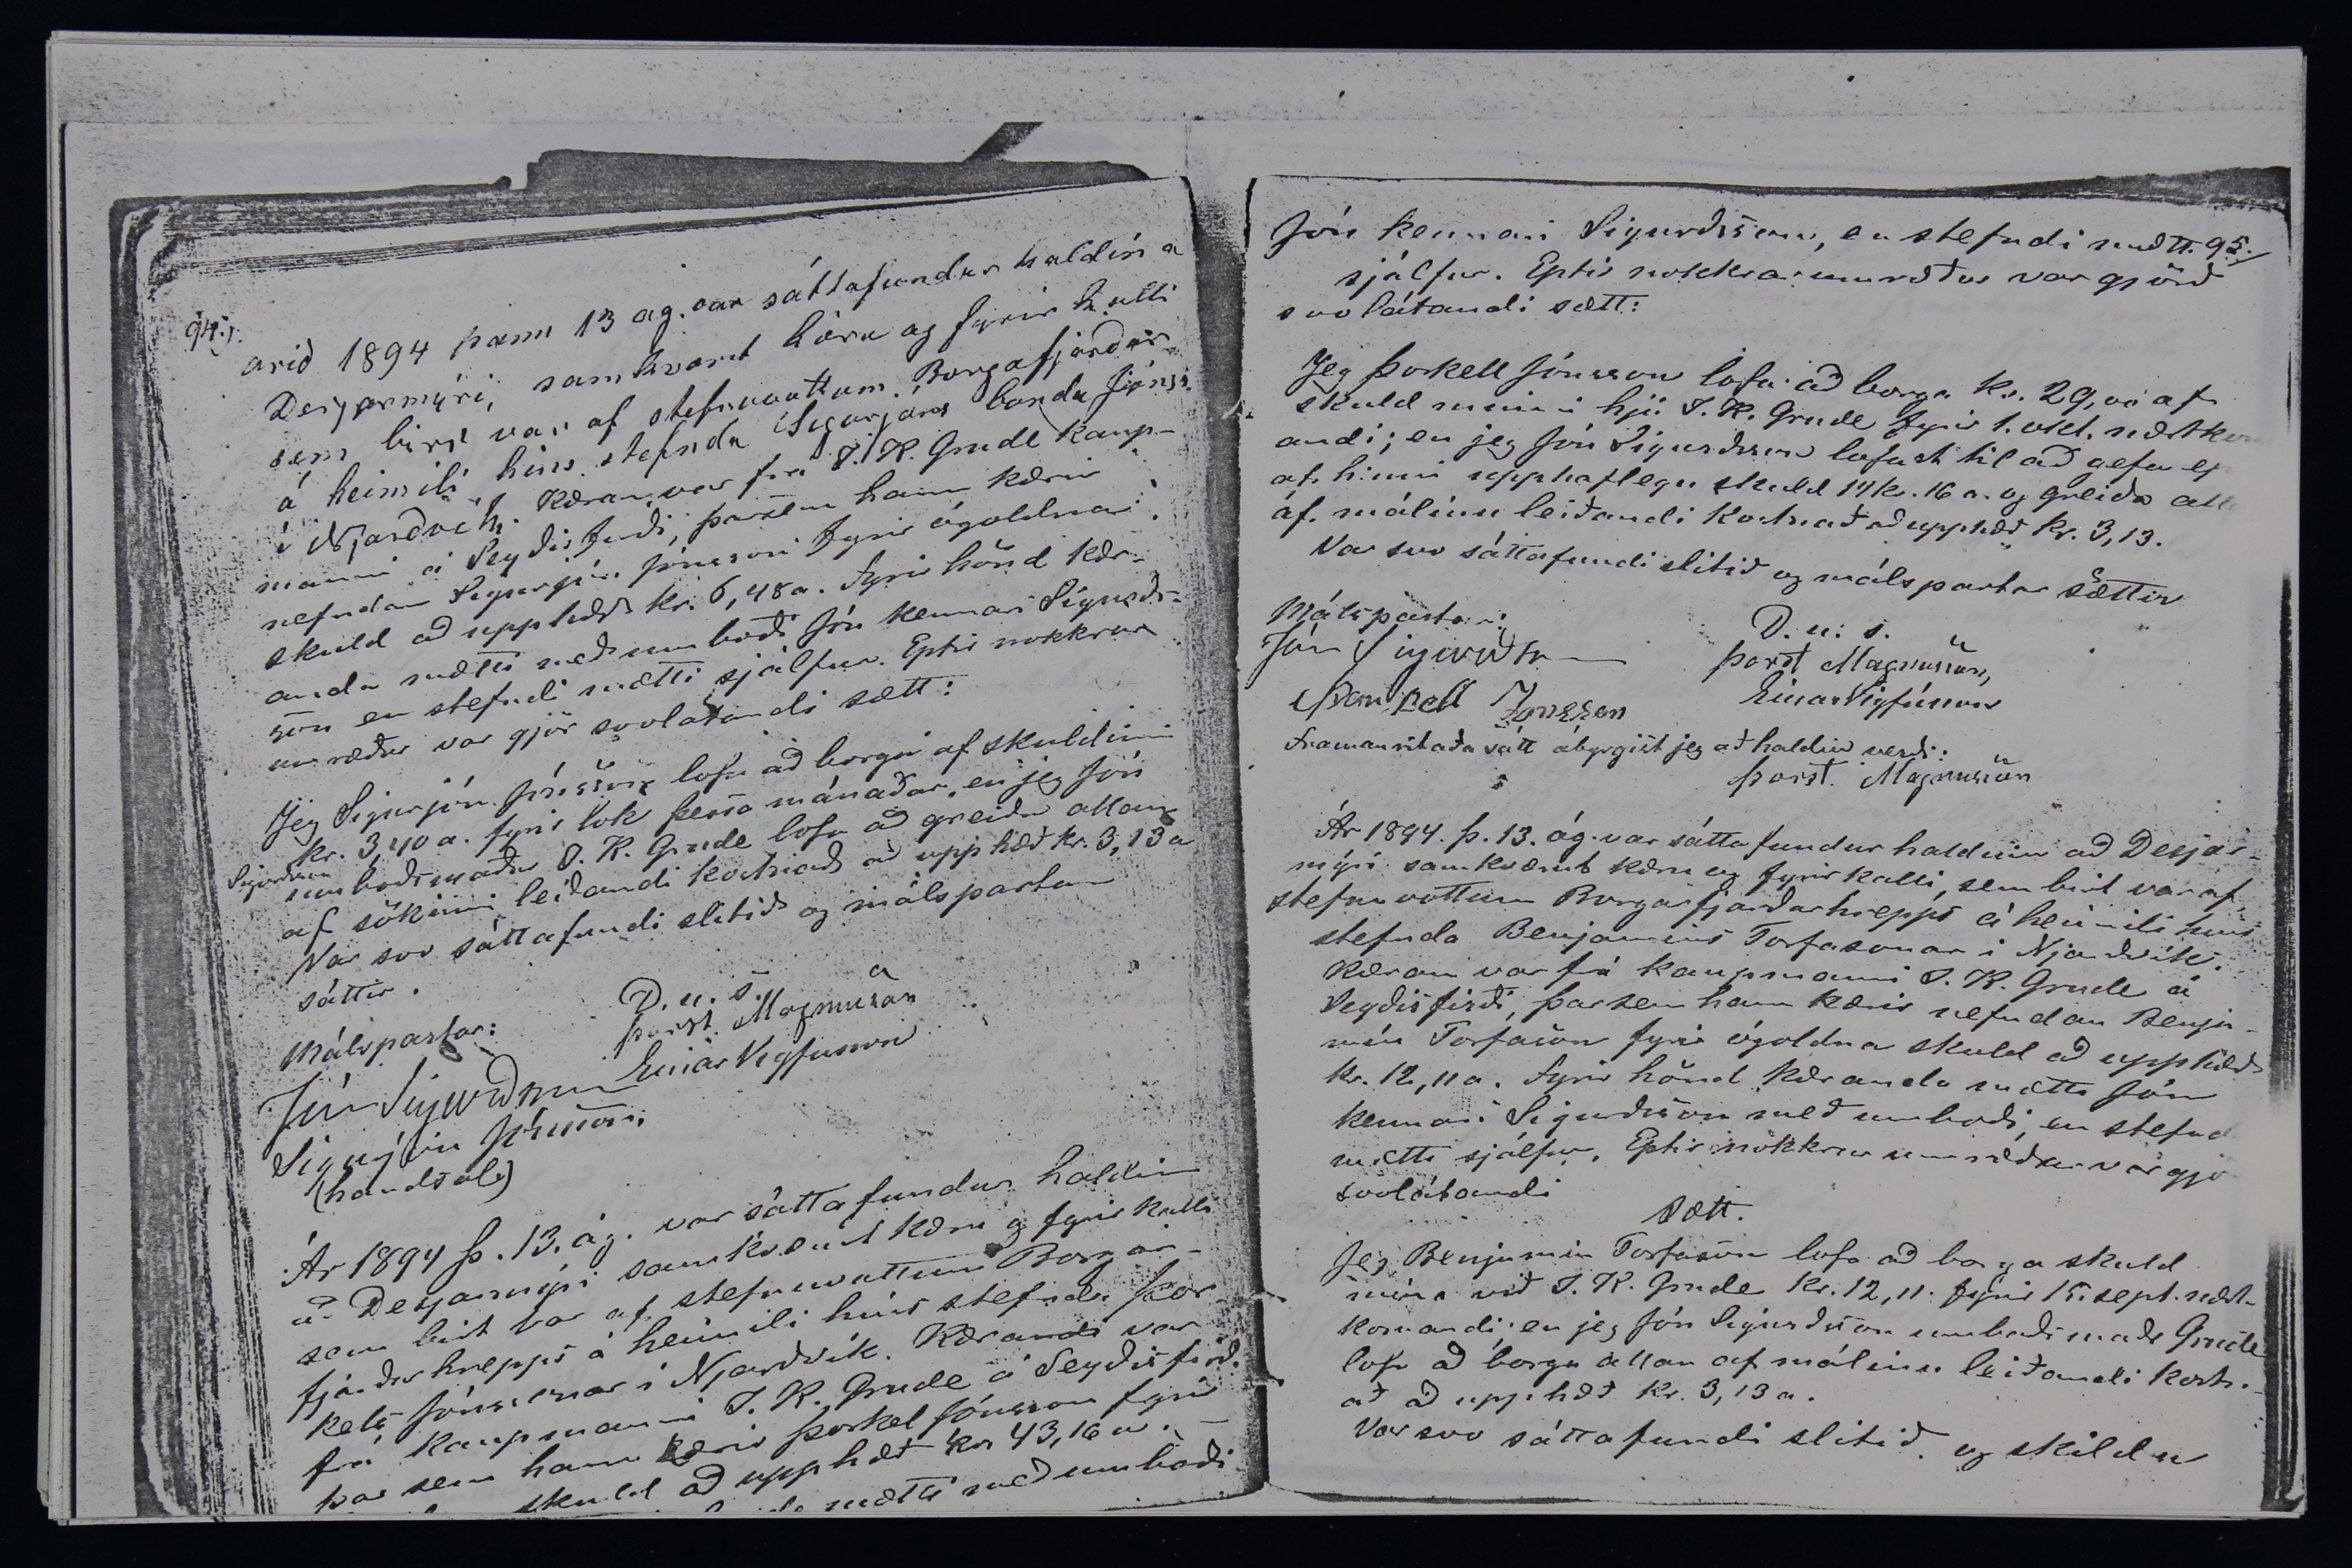 94.
arið 1894 þann 13 ág. var sáttafundur haldin á
Desjarmýri, samkvæmt kæru og fyrir kalli
sem birt var af stefnuvottum Borgafjarðar
á heimili hins stefnda Sigurjóns bonda Jónss.
í Njarðvík. Kæran var frá T. K. Grude kaup-
manni á Seyðisfirði, þarsem hann kærir
nefndan Sigurjón Jónsson fyrir ógoldna
skuld að upphæð kr. 6,48 a. Fyrir hönd kær-
anda mætti með umboði Jón kennari Sigurðs-
son en stefndi mætti sjálfur. Eptir nokkrar
umræður var gjör svolátandi sætt:
Jeg Sigurjón Jónsson lofa að borga af skuldinni
kr. 3,40 a. fyrir lok þessa mánaðar, en jeg Jón
Sigurðsson
umboðsmaður T. K. Grude lofa að greiða allan
af sökinni leiðandi kostnað að upphæð kr. 3,13 a
Var svo sáttafundi slitið og málspartar
sáttir.
D. u. s.
Málspartar:
Þorst. Magnusson
Jón Sigurðsson
Einar Vigfusson
Sigurjón Jónsson
(handsal)
Ár 1894 þ. 13. ág. var sáttafundur haldin
á Desjarmýri samkvæmt kæru og fyrir kalli
sem birt var af stefnuvottum Borgar-
fjarðarhrepps á heimili hins stefnda Þor-
kels Jónssonar í Njarðvík. Kærandi var
frá kaupmanni T. K. Grude á Seyðisfirði
þar sem hann kærir Þorkel Jónsson fyrir
skuld að upphæð kr 43,16 a.
mætti með umboði
95.
Jón kennari Sigurðsson, en stefndi mætti
sjálfur. Eptir nokkrar umræður var gjörð
svolátandi sætt:
Jeg Þorkell Jónsson lofa að borga kr. 29,00 af
skuld minni hjá T. K. Grude fyrir 1. okt. næstkom
andi; en jeg Jón Sigurðsson lofast til að gefa ep
af hinni upphaflegu skuld 14 kr. 16 a. og greiða all
af málinu leiðandi kostnað að upphæð kr. 3,13.
Var svo sáttafundi slitið og málspartar sættir
Málspartar:
D. u. s.
Jón Sigurðsson
Þorst Magnusson,
Þorkell Jónsson
Einar Vigfússon
Framanritaða sátt ábyrgist jeg að haldin verði:
Þorst. Magnusson
Ár 1894. þ. 13. ág. var sáttafundur haldinn að Desjar-
mýri samkvæmt kæru og fyrirkalli, sem birt var af
stefnuvottum Borgarfjarðarhrepps á heimili hins
stefnda Benjamíns Torfasonar í Njarðvík.
Kæran var frá kaupmanni T. K. Grude á
Seyðisfirði, þarsem hann kærir nefndan Benja-
mín Torfason fyrir ógoldna skuld að upphæð
kr. 12,11 a. Fyrir hönd kæranda mætti Jón
kennari Sigurðsson með umboði, en stefnd
mætti sjálfur. Eptir nokkrar umræður var gjö
svolátandi
Sætt.
Jeg Benjamín Torfason lofa að borga skuld
mína við T. K. Grude kr. 12,11. fyrir 15. sept. næst-
komandi; en jeg Jón Sigurðsson umboðsmaðr Grude
lofa að borga allan af málinu leiðandi kostn-
að að upphæð kr. 3,13 a.
Var svo sáttafundi slitið og skildu